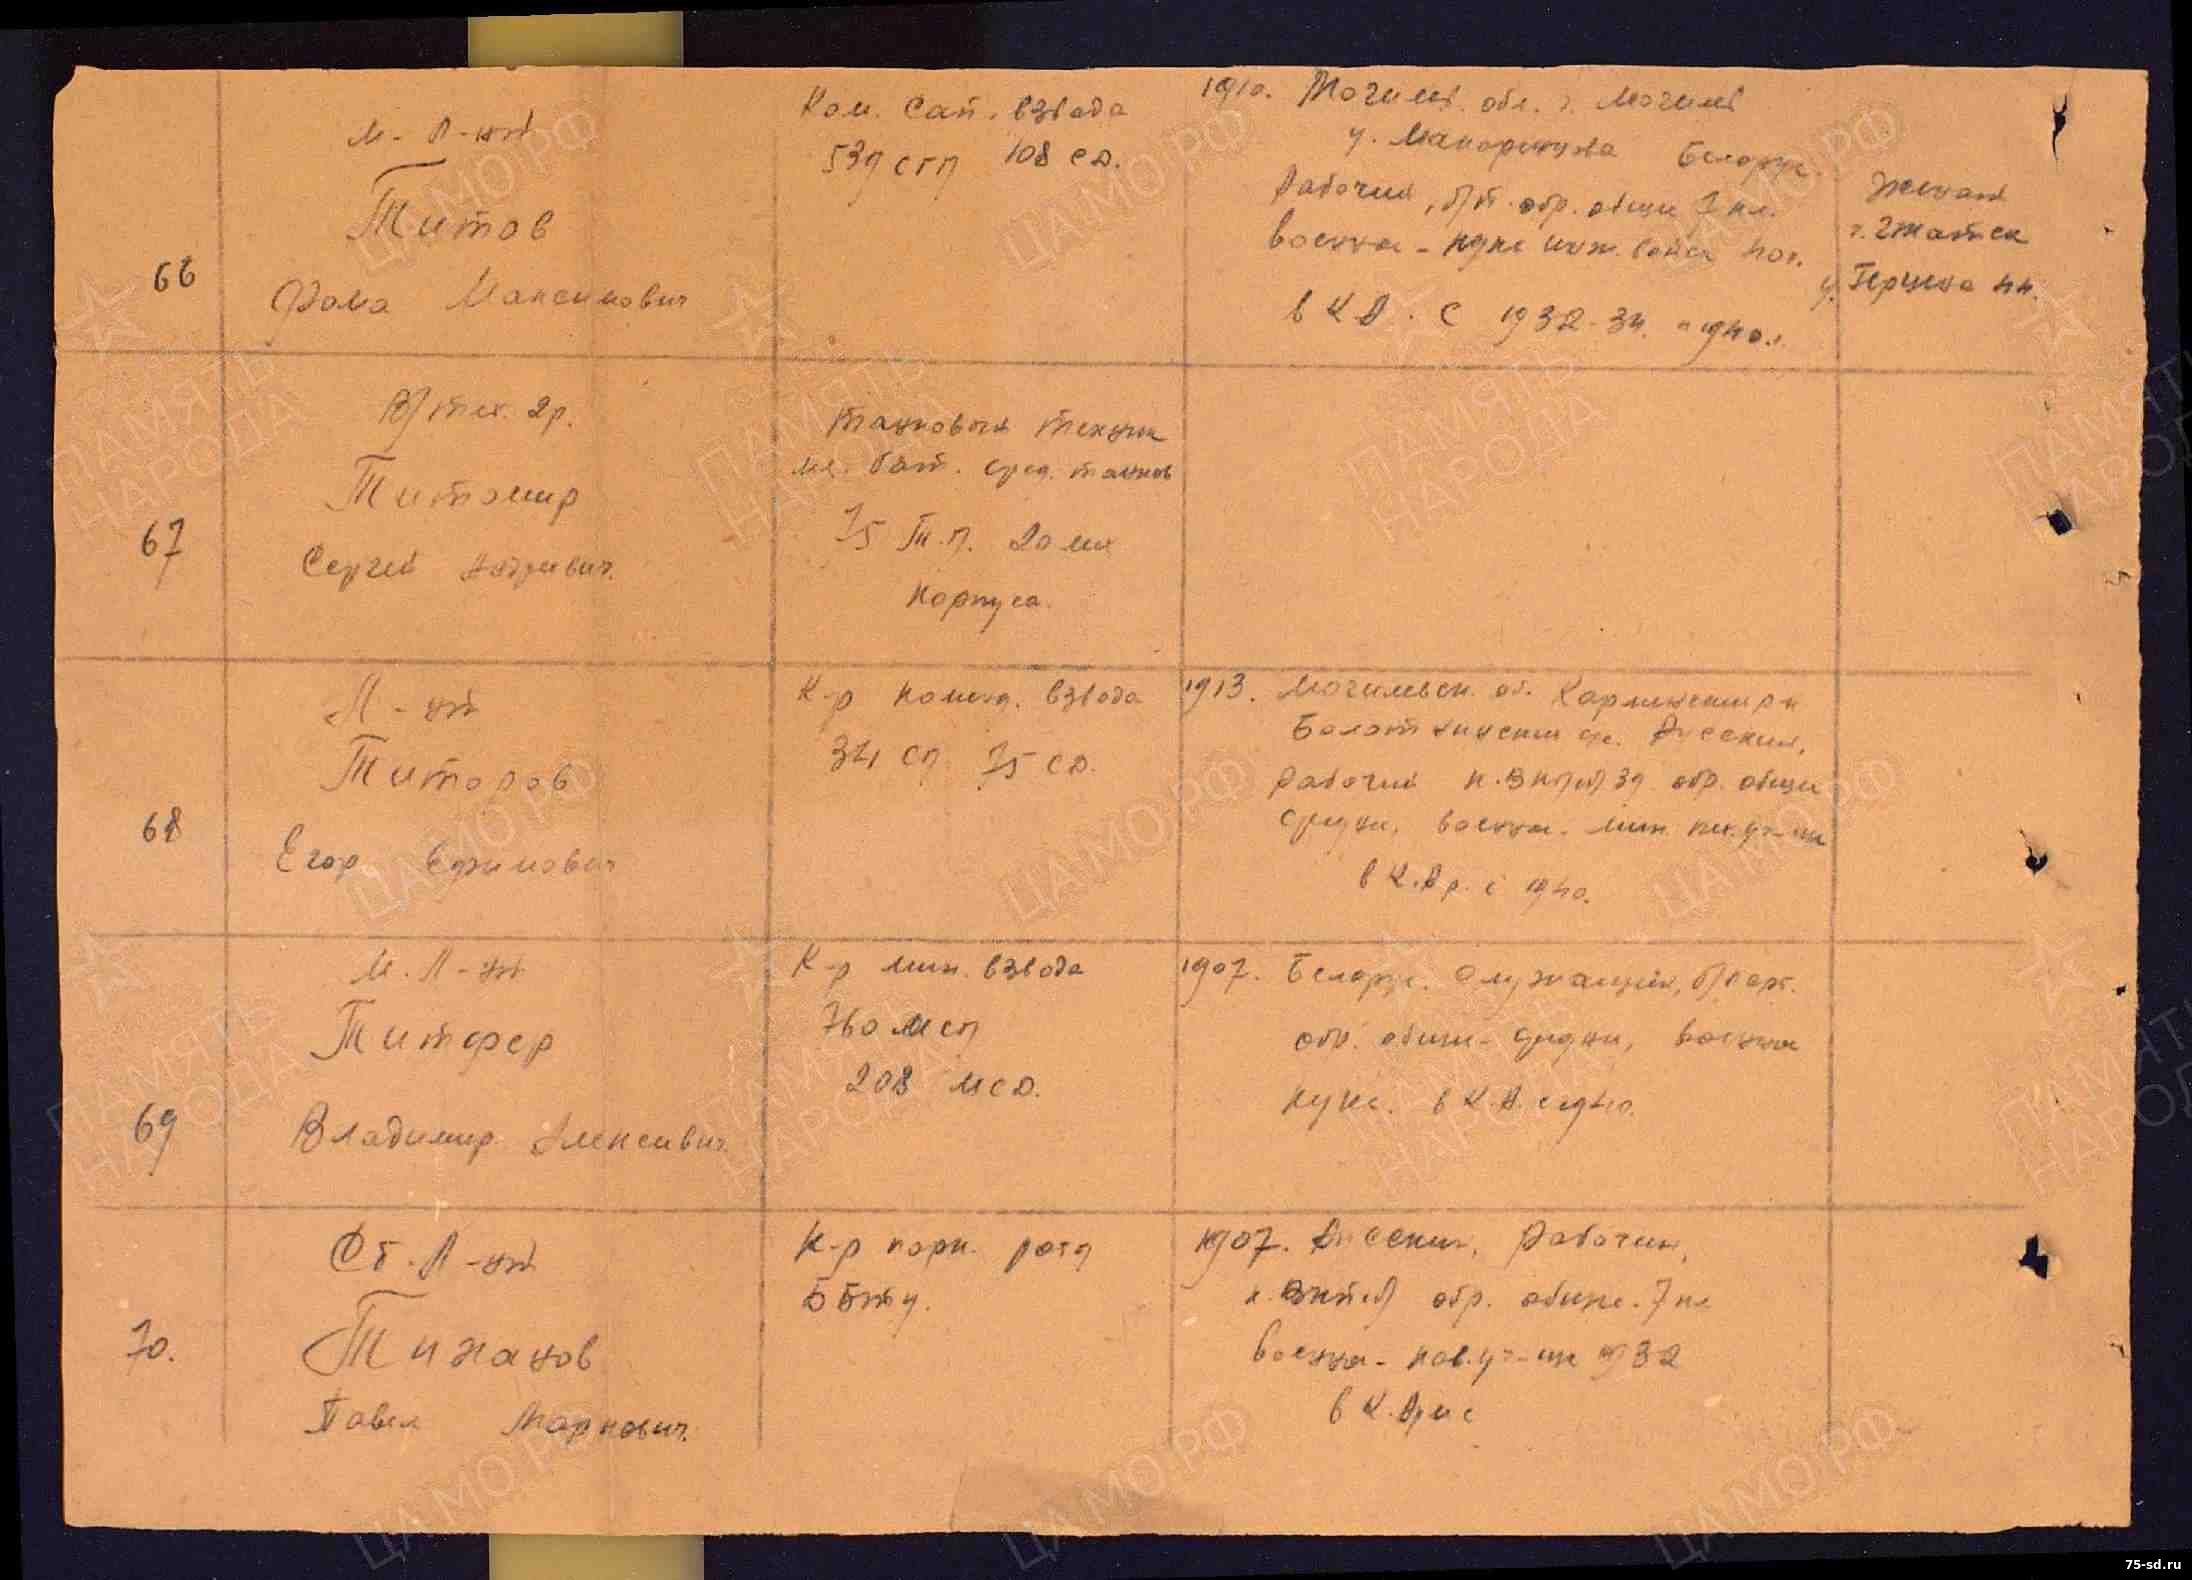 66
М-Л-нт
Титов
Фома Максимович
Ком. Сап. взвода
539 сп 108 СД.
1910. Могилев. обл. г. Могилев
у. Белорус.
Рабочий, б/п. обр. общи 7 кл.
военная - курс инж. войск
в К А. С 1932-34. и 1940.
Женат
г. Гжатск
у. Герцена 44.
67
В/тех. 2р.
Титомир
Сергей Андреевич.
Танковый техник
мл. бат. сред. танков
75 Т.П. 20 мех
корпуса.
68
Л-нт
Титоров
Егор Ефимович
К-р команд. взвода
34 СП 75 СД.
1913. Могилевск. об.
Русский,
рабочий к. ВКП(б) 39 обр. общи
средни, военная - мин. пех. уч-ще
в К.Ар. с 1940.
69
М.Л-нт
Титфер
Владимир Алексеевич.
К-р мин. взвода
760 мсп
208 МСД.
1907. Белорус. Служащий, б/парт.
обр. общи- средни, военная
курс. в К.А. с 1940.
70.
Ст.Л-нт
Тиханов
Павел Маркович.
К-р парк. роты
Б Бту.
1907. Русский, Рабочий,
к. ВКП(б) обр. общее. 7 кл
Военная - кав. уч-ще 1932
в К.Арм с
ЦАМО.РФ
ПАМЯТЬ
НАРОДА
75-sd.ru